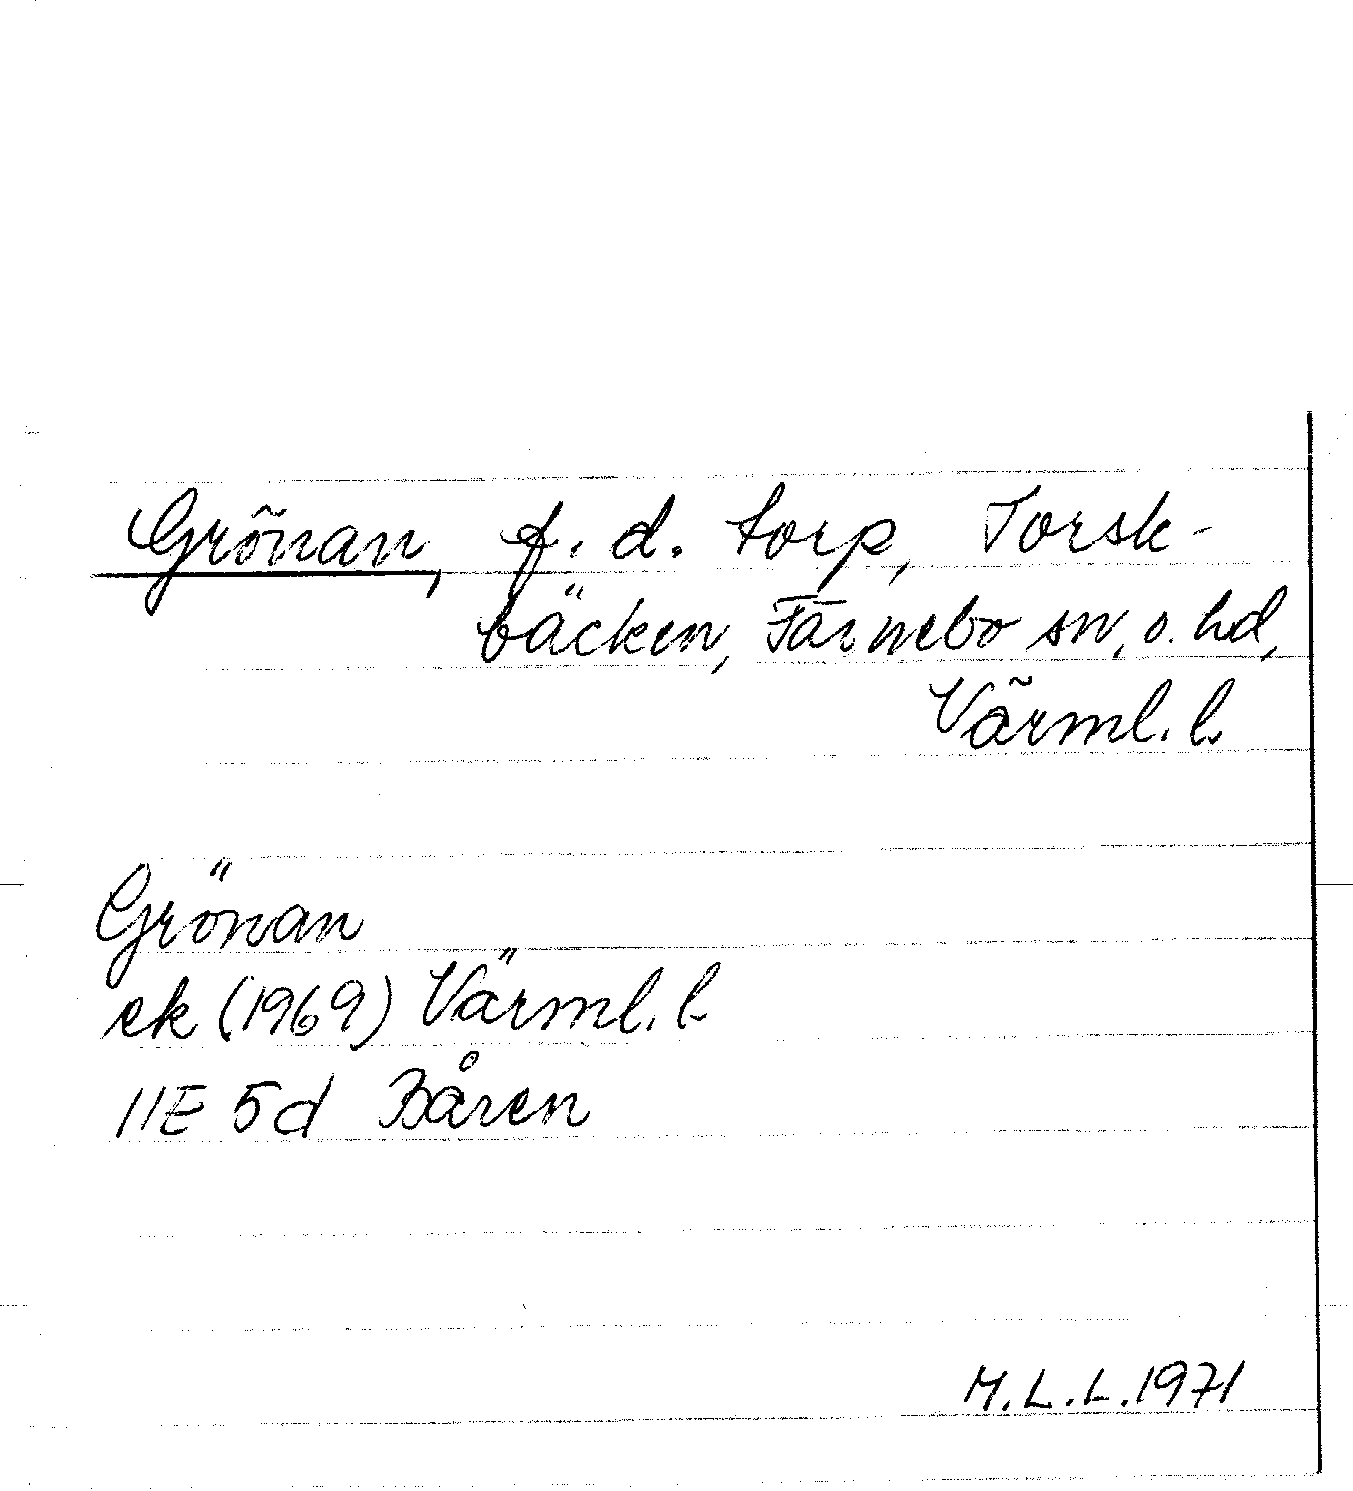 Grönan, f. d. torp, Torsk-
bäcken, Färnebo sn, o. hd,
Värml. l.
Grönan
ek (1969) Värml. l.
11E 5d Båren
M.L.L.1971